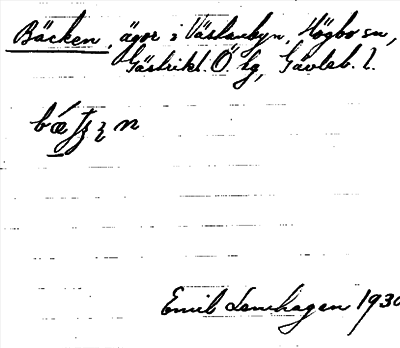 Bäcken, ägor i Västanbyn, Högbo sn,
Gästrikl. Ö. tg, Gävleb. l.
Emil Lenhagen 1930